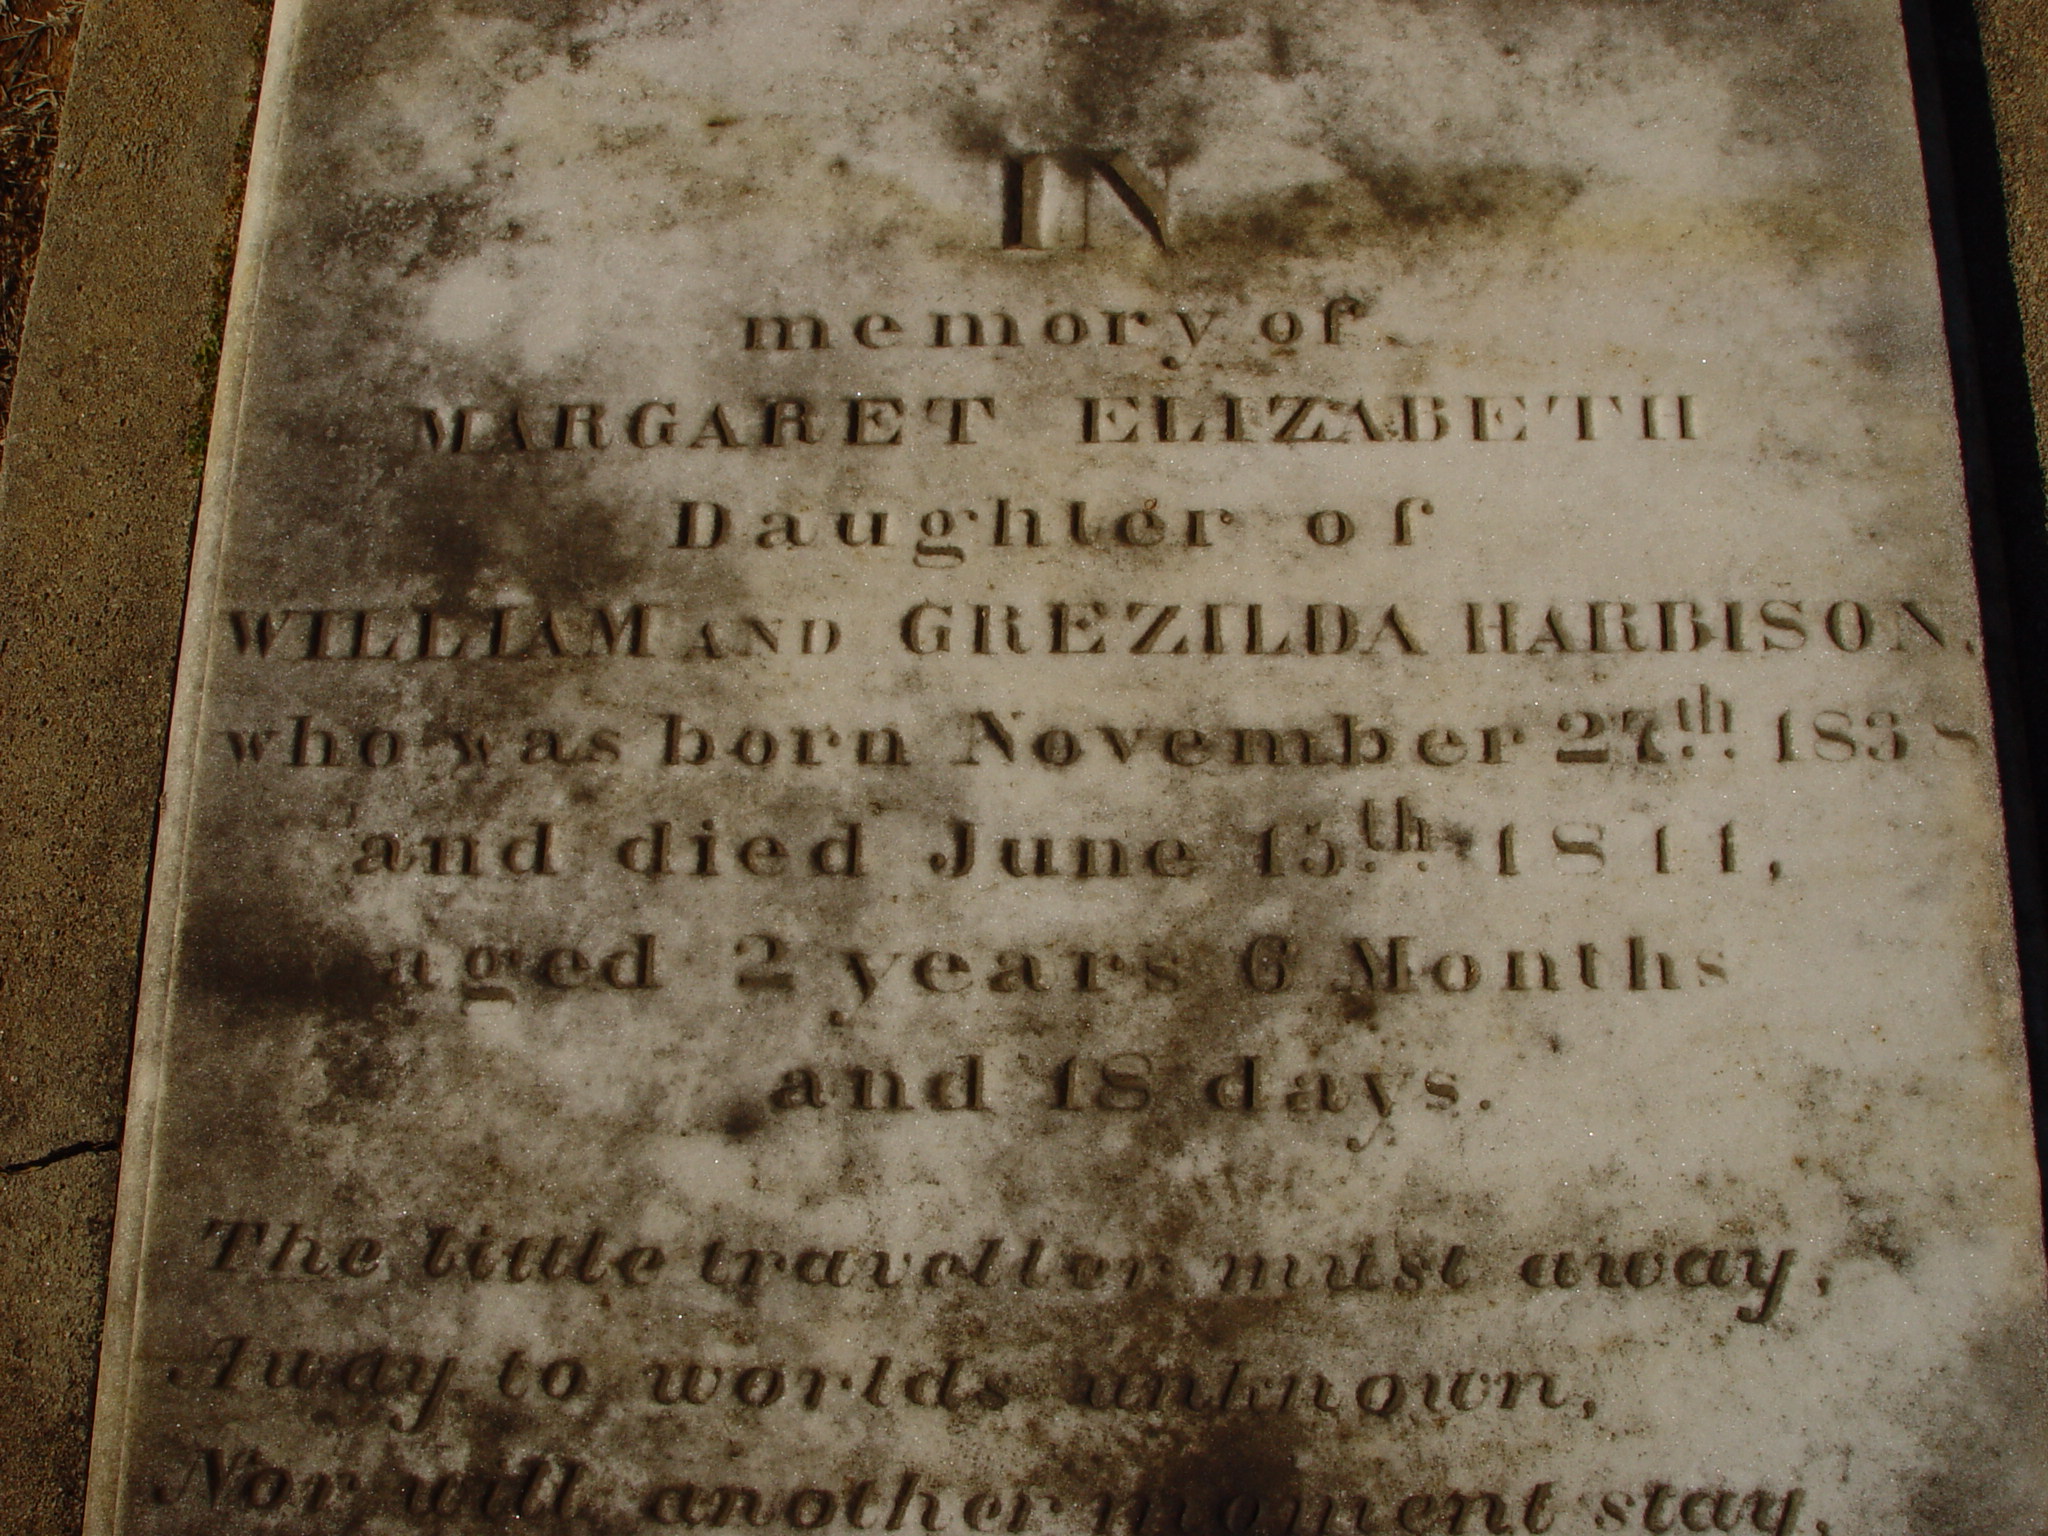 IN
memory of
MARGARET ELIZABETH
Daughter of
WILLIAM AND GREZILDA HARBISON,
who was born November 27th 1838
and died June 15th 1841,
aged 2 years 6 Months
and 18 days.
The little traveller must away,
Away to worlds unknown,
Nor will another moment stay,